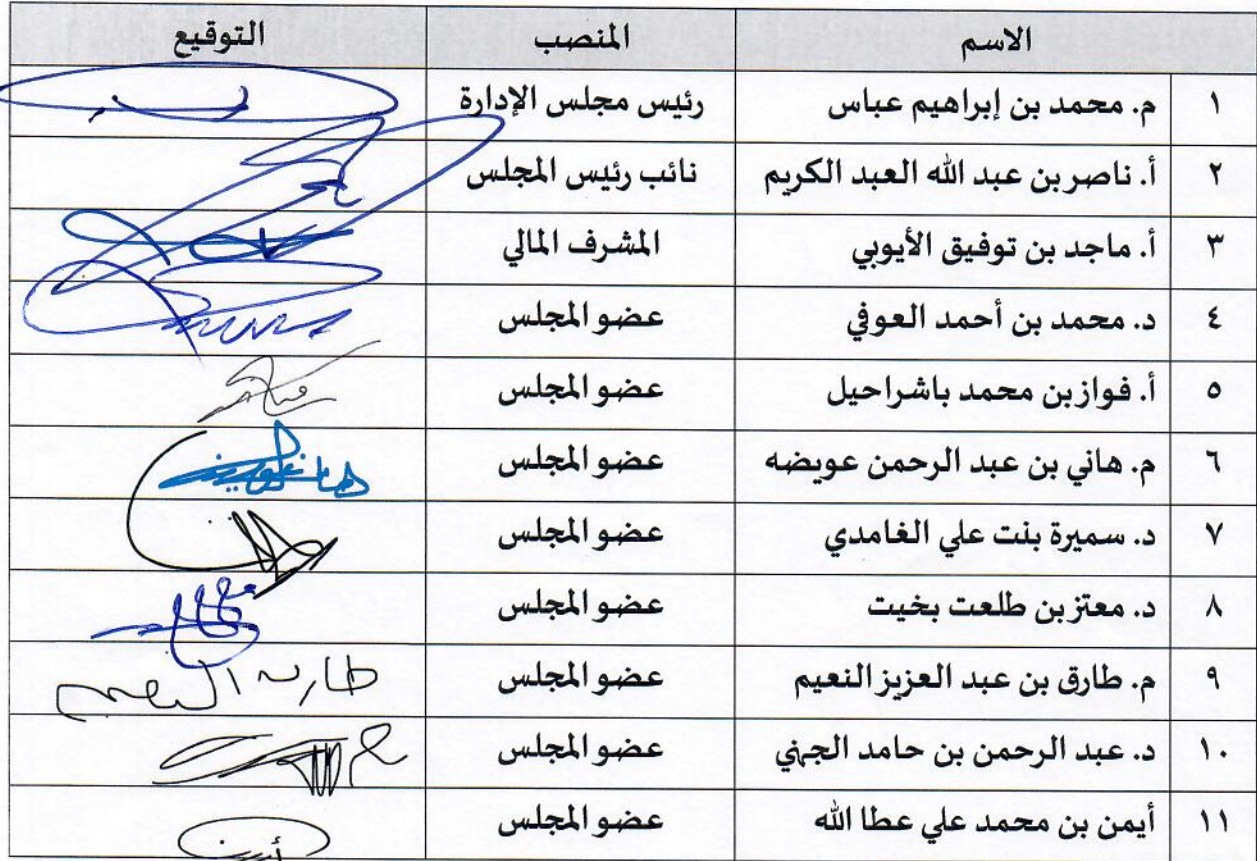 الاسم المنصب التوقيع
١ م. محمد بن إبراهيم عباس رئيس مجلس الإدارة
٢ أ. ناصر بن عبد الله العبد الكريم نائب رئيس المجلس
٣ أ. ماجد بن توفيق الأيوبي المشرف المالي
٤ د. محمد بن أحمد العوفي عضو المجلس
٥ أ. فواز بن محمد باشراحيل عضو المجلس
٦ م. هاني بن عبد الرحمن عويضه عضو المجلس
٧ د. سميرة بنت علي الغامدي عضو المجلس
٨ د. معتز بن طلعت بخيت عضو المجلس
٩ م. طارق بن عبد العزيز النعيم عضو المجلس طارق النعيم
١٠ د. عبد الرحمن بن حامد الجهني عضو المجلس
١١ أيمن بن محمد علي عطا الله عضو المجلس أيمن